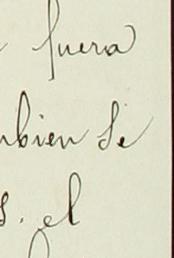 fuera
mbien se
s. el